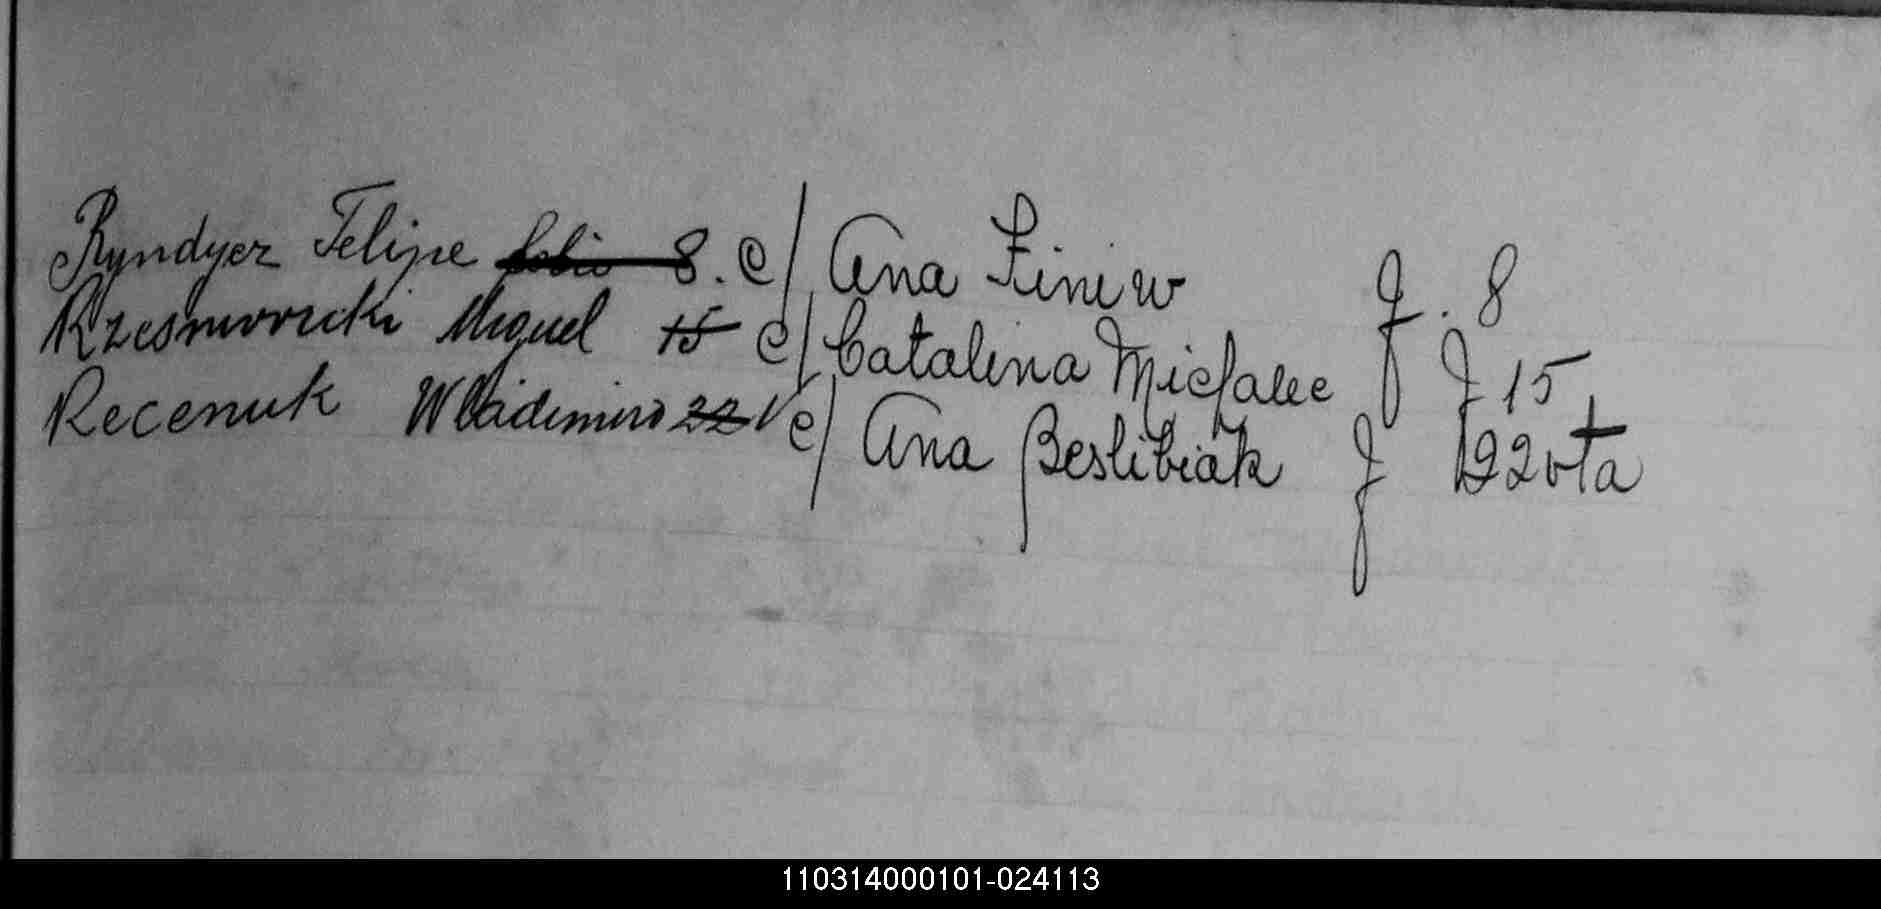 Ryndycz Felipe folio 8. c/ Ana Finiw f. 8
Rzesniovecki Miguel 15 c/ Catalina Micfalec f 15
Recenuk Wladimiro 22 v c/ Ana Beslibiak f 22 vta
110314000101-024113